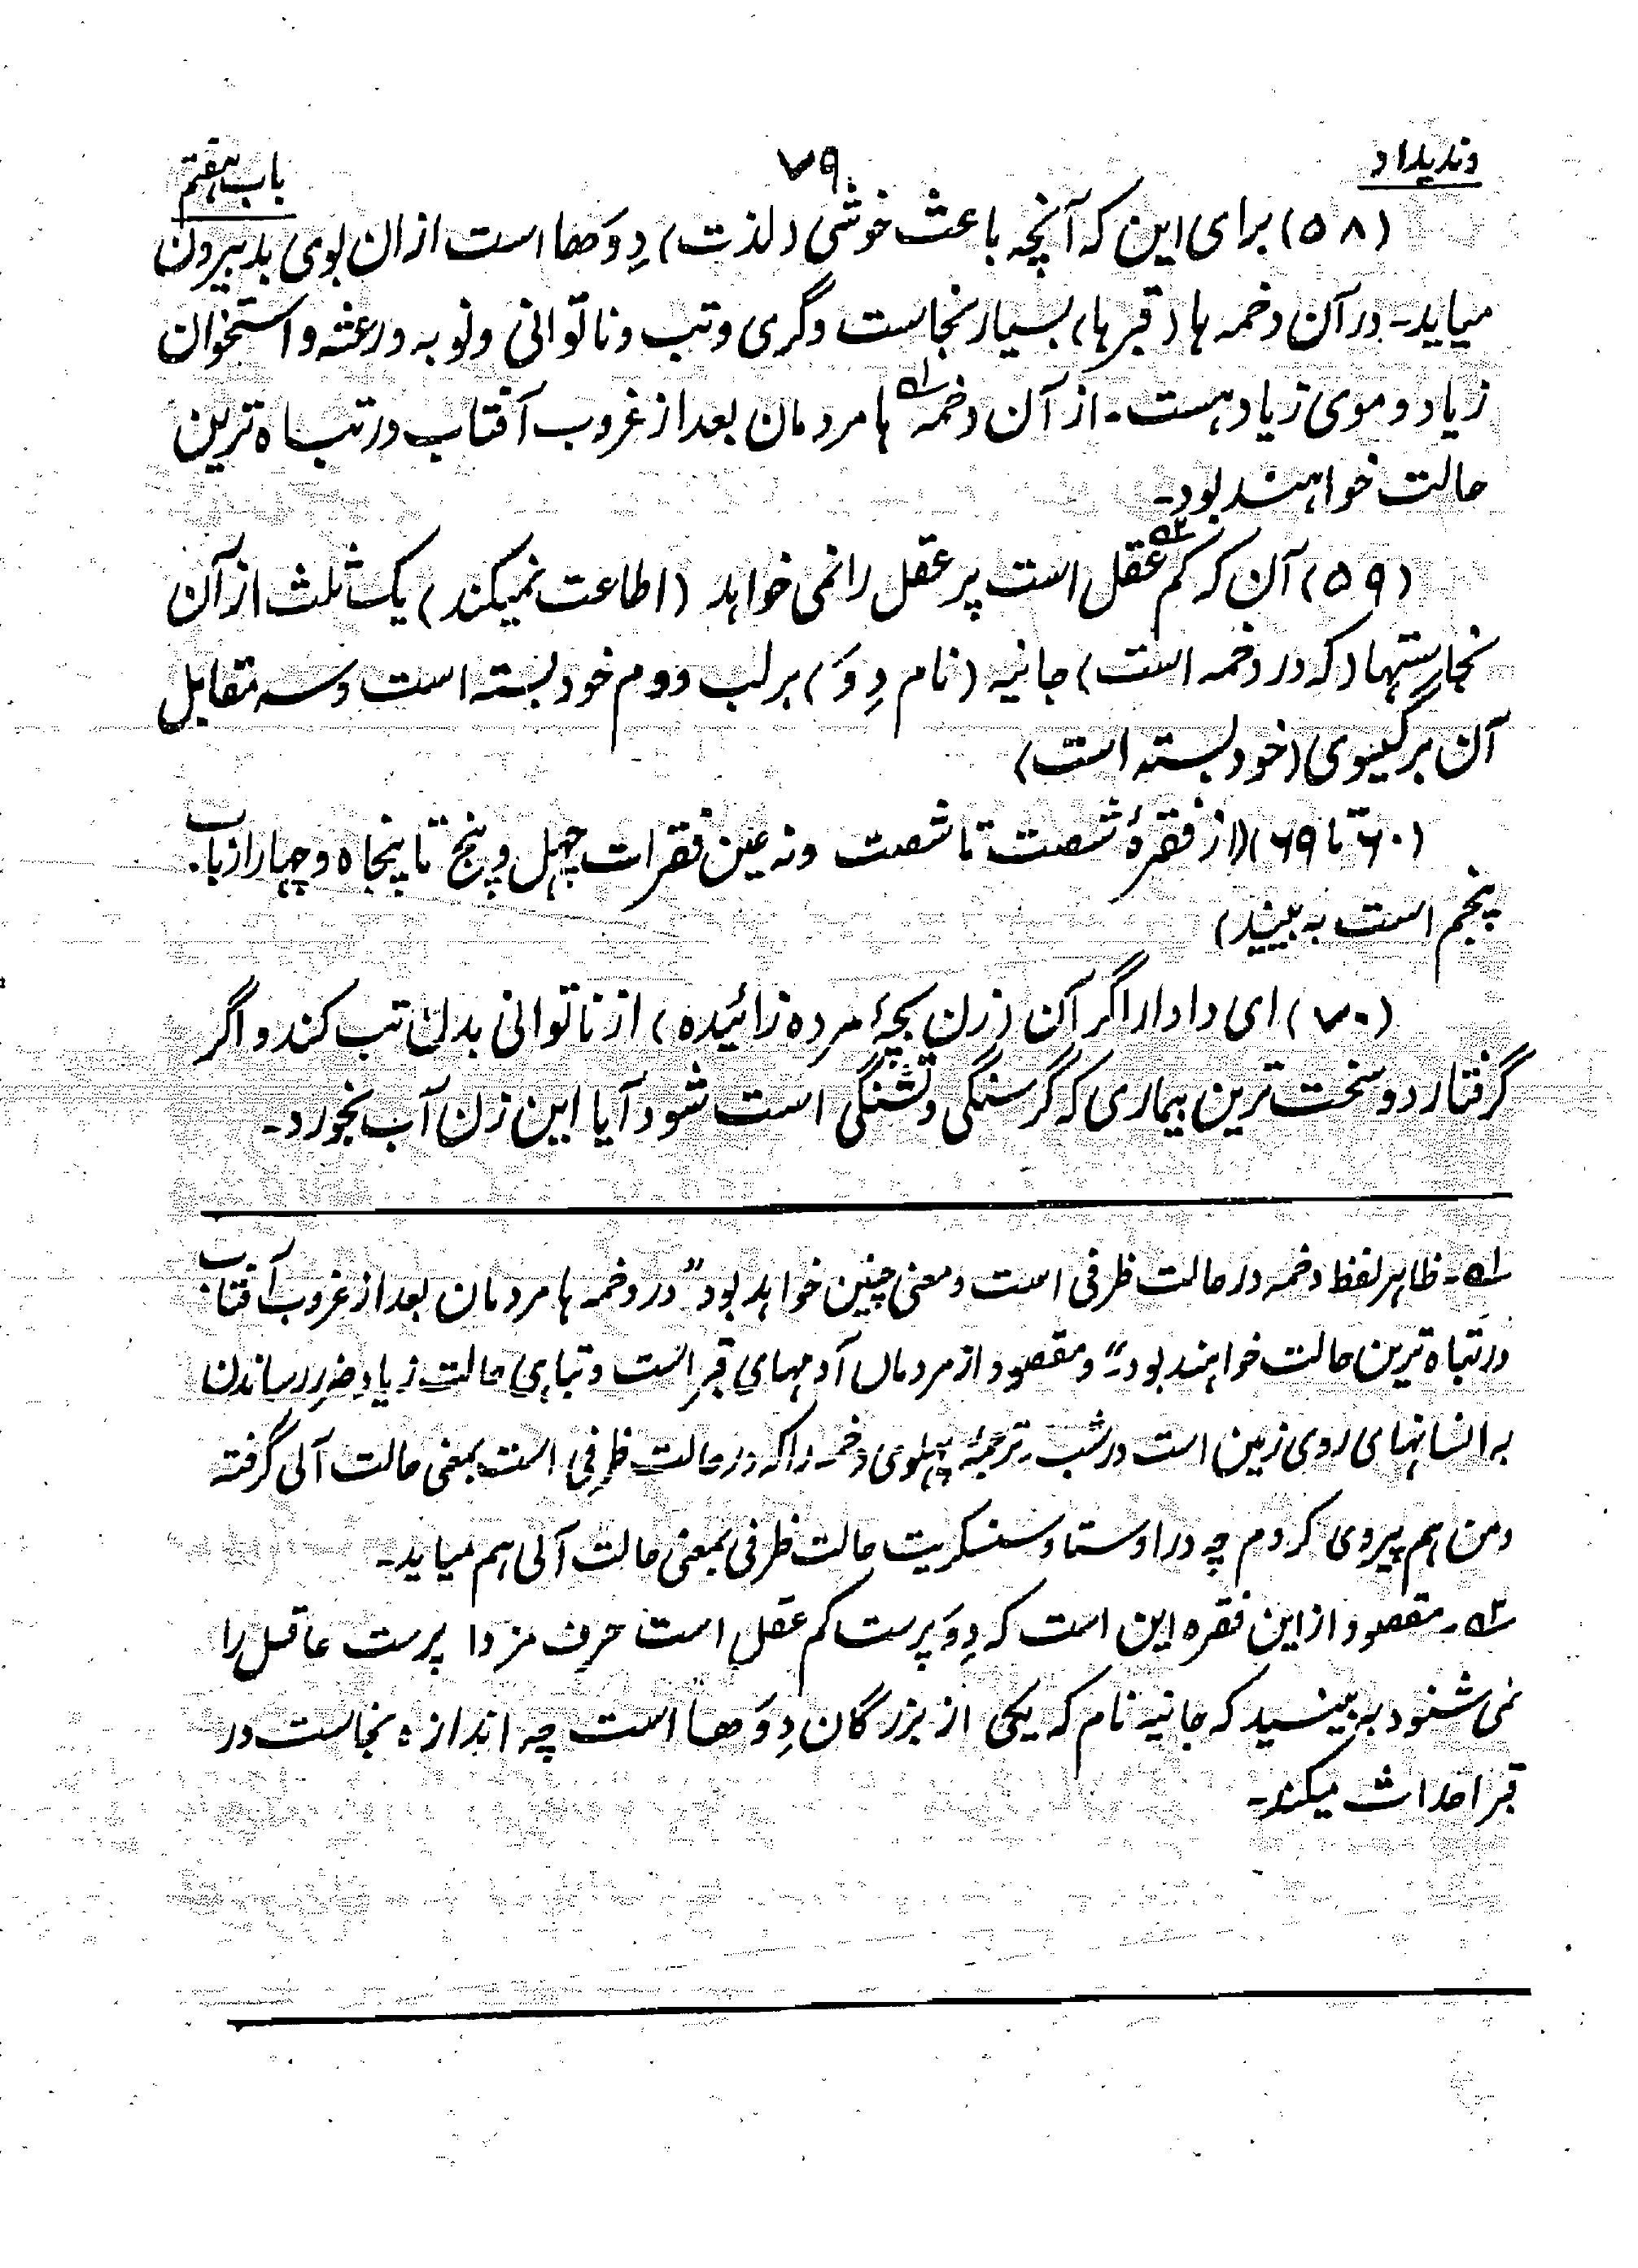 وندیداد
۷۹
باب هفتم
(۵۸) برای این که آنچه باعث خوشی (لذت) دِوَها است ازان بوی بد بیرون
میاید۔ در آن دخمه ها (قبرها) بسیار نجاست وگری و تب و ناتوانی و نوبه و رعشه و استخوان
زیاد و موی زیاد هست۔ از آن دخمه ۱ ها مردمان بعد از غروب آفتاب در تباه ترین
حالت خواهند بود۔
(۵۹) آن که کم عقل ۲ است پر عقل را نمی خواهد (اطاعت نمیکند) یک ثلث از آن
نجاستها (که در دخمه است) جانیه (نام دِوَ) بر لب و دم خود بسته است و سه مقابل
آن بر گیسوی (خود بسته است)
(۶۰ تا ۶۹) (از فقرهٔ شصت تا شصت و نه عین فقرات چهل و پنج تا پنجاه و چهار از باب
پنجم است به بینید)
(۷۰) ای دادار اگر آن (زن بچهٔ مرده زائیده) از ناتوانی بدن تب کند و اگر
گرفتار دو سخت ترین بیماری که گرسنگی و تشنگی است شود آیا این زن آب بخورد۔
۱۔ ظاهر لفظ دخمه در حالت ظرفی است و معنی چنین خواهد بود "در دخمه ها مردمان بعد از غروب آفتاب
در تباه ترین حالت خواهند بود۔" و مقصود از مردمان آدمهای قبر است و تباهی حالت زیاد ضرر رساندن
به انسانهای روی زمین است در شب۔ ترجمهٔ پهلوی دخمه را که در حالت ظرفی است بمعنی حالت آلی گرفته
و من هم پیروی کردم چه در اوستا و سنسکریت حالت ظرفی بمعنی حالت آلی هم میاید۔
۲۔ مقصود از این فقره این است که دِوَ پرست کم عقل است حرف مزدا پرست عاقل را
نمی شنود به بینسید که جانیه نام که یکی از بزرگان دِوَها است چه اندازه نجاست در
قبر احداث میکند۔